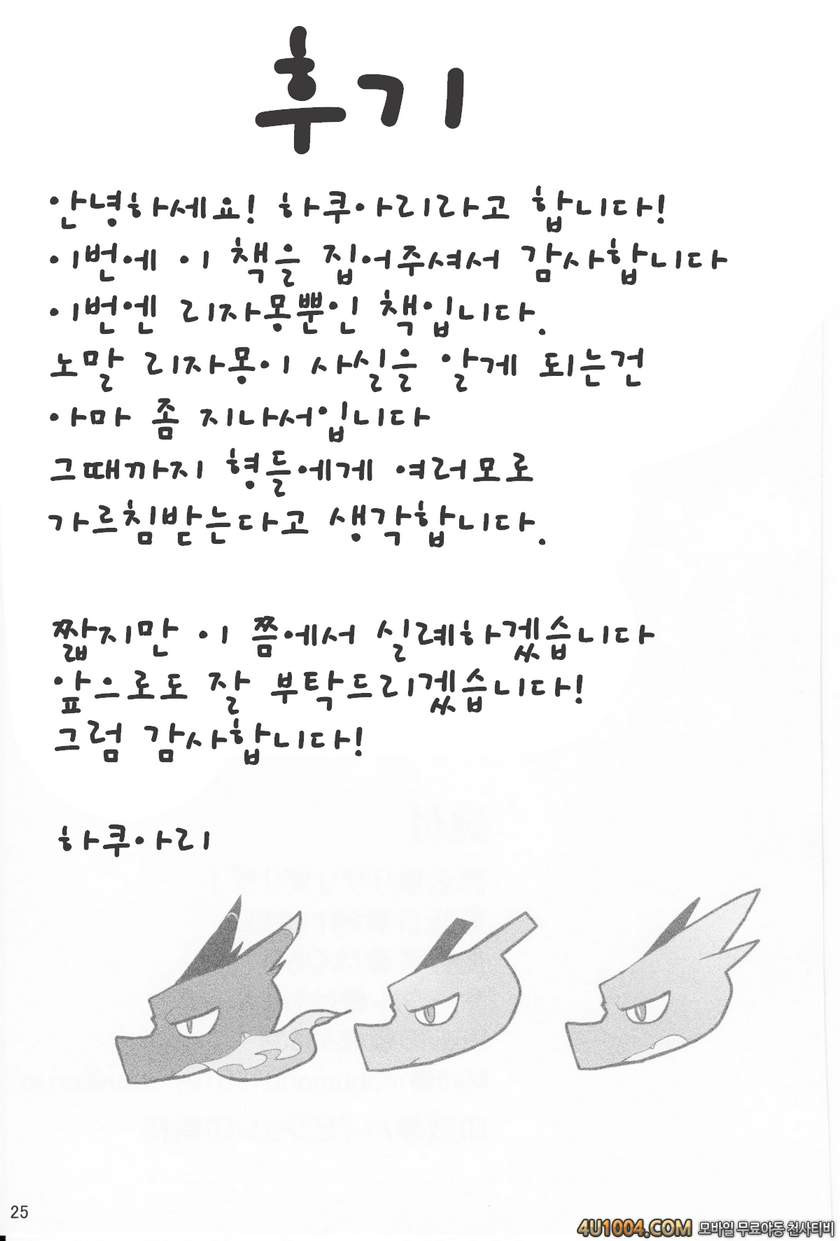 후기
안녕하세요! 하쿠아리라고 합니다!
이번에 이 책을 집어주셔서 감사합니다
이번엔 리자몽뿐인 책입니다.
노말 리자몽이 사실을 알게 되는건
아마 좀 지나서입니다
그때까지 형들에게 여러모로
가르침받는다고 생각합니다.
짧지만 이 쯤에서 실례하겠습니다
앞으로도 잘 부탁드리겠습니다!
그럼 감사합니다!
하쿠아리
25
4U1004.COM 모바일 무료야동 천사티비